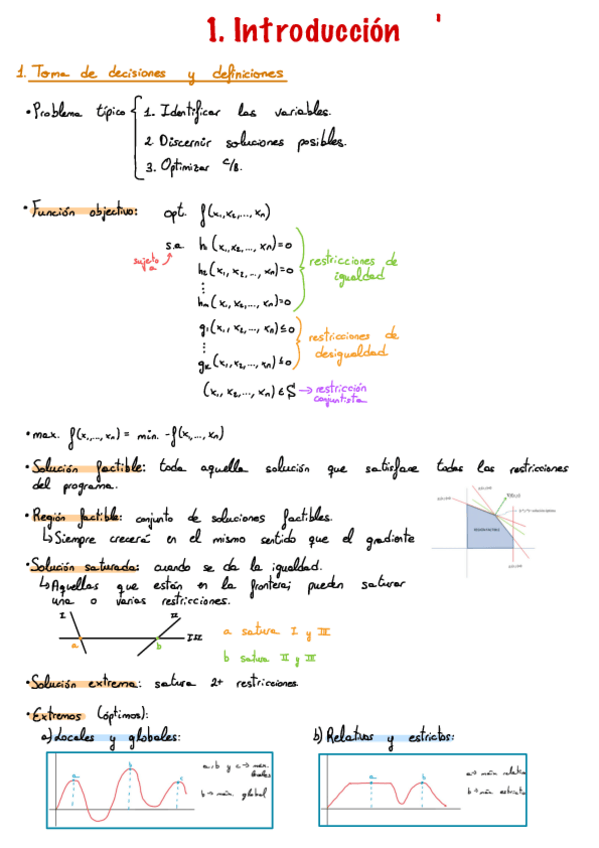 1. Introducción
1. Toma de decisiones y definiciones
• Problema típico { 1. Identificar las variables.
2. Discernir soluciones posibles.
3. Optimizar c/B.
• Función objetivo: opt. f(x₁,x₂,..., xₙ)
s.a. h₁(x₁,x₂,..., xₙ)=0
sujeto a
h₂(x₁,x₂,..., xₙ)=0
⋮
hₘ(x₁,x₂,..., xₙ)=0
restricciones de
igualdad
g₁(x₁,x₂,..., xₙ)≤0
⋮
gₖ(x₁,x₂,..., xₙ)≤0
restricciones de
desigualdad
(x₁,x₂,..., xₙ)∈S → restricción
conjuntista
• max. f(x₁,..., xₙ) = min. -f(x₁,..., xₙ)
• Solución factible: toda aquella solución que satisface todas las restricciones
del programa.
• Región factible: conjunto de soluciones factibles.
↳ Siempre crecerá en el mismo sentido que el gradiente
• Solución saturada: cuando se da la igualdad.
↳ Aquellas que están en la frontera; pueden saturar
una o varias restricciones.
I II
III
a b
a satura I y III
b satura II y III
• Solución extrema: satura 2+ restricciones.
• Extremos (óptimos):
a) Locales y globales:
b) Relativos y estrictos:
a b c
a, b y c → máx.
locales
b → máx. global
a b
a → máx relativo
b → máx estricto